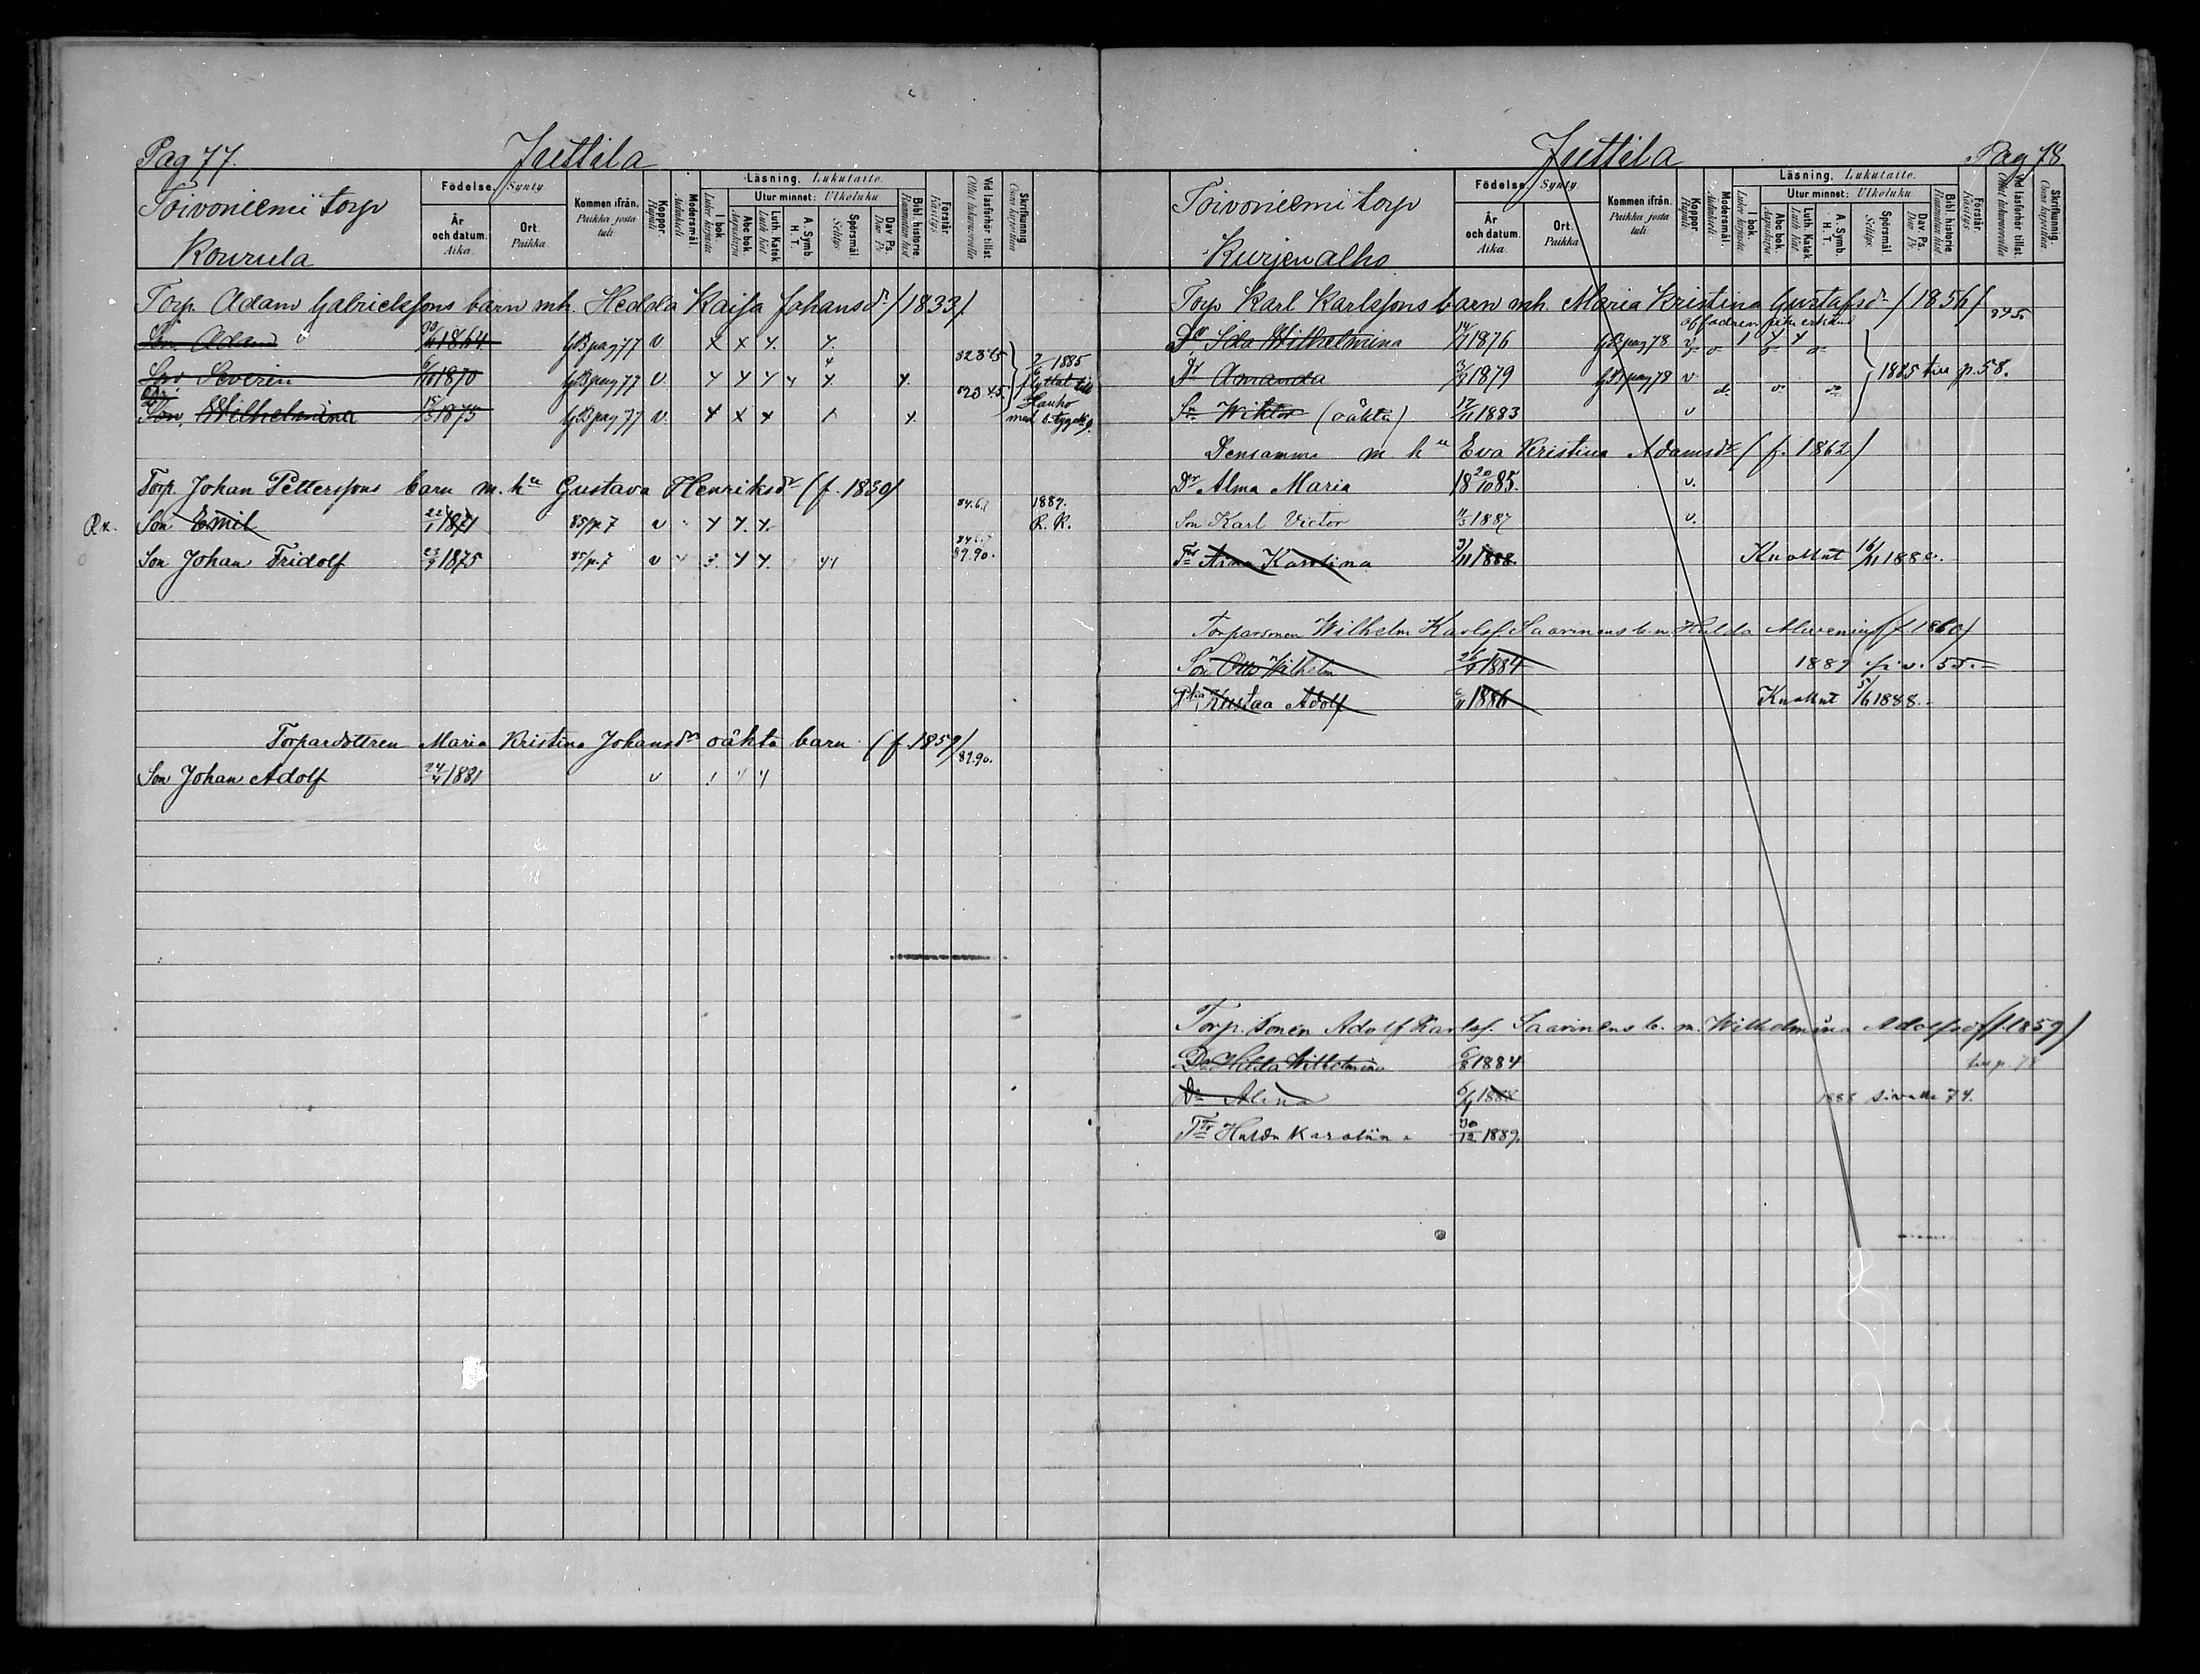 Pag 77.
Juttila
Toivoniemi torp
Kouvula
Födelse. Synty.
År och datum. Aika.
Ort. Paikka.
Kommen ifrån. Paikka josta tuli.
Koppor. Rupuli
Modersmål. Äidinkieli
Läsning. Lukutaito.
I bok. Lukee kirjasta
Utur minnet: Ulkoluku
Abc bok. Aapiskirja
Luth. Katek. Luth. Kat.
A. Symb. H. T.
Spörsmål Selitys
Dav. Ps. Dav. Ps.
Bibl. historie Raamatun hist.
Förstår. Käsitys
Vid läsförhör tillst.
Skrifkunnig.
Torp. Adam Gabrielssons barn mh. Hedda Kaisa Johansdr (1833).
Son Adam 1864 GB pag 77 v. x x 4. 4. 82 3 45
Son Severin 6/10 1870 GB pag 77 v. 4 4 4 4 4. 4. 7/6 1885 flyttat till
Wilhelmina 15/5 1875 GB pag 77 v. 4 x 4 4. 823.45. Hauho med b. 
Torp. Johan Petterssons barn m. ha Gustava Henriksdr (f. 1830)
Rx. Son Emil 22/1 1871 85/p. 7 v 4 4. 4. 84.6. 1889. R. K.
Son Johan Fridolf 23/9 1875 85/p. 7 v 3. 4 4. 44 89.90.
Torpardottren Maria Kristina Johansdrs oäkta barn. (f. 1859) 89.90.
Son Johan Adolf 24/4 1881 v 1 4 4
Juttila
Pag 78
Toivoniemi torp
Kurjenalho
Födelse. Synty.
År och datum. Aika.
Ort. Paikka
Kommen ifrån. Paikka josta tuli.
Koppor. Rupuli
Modersmål. Äidinkieli.
Läsning. Lukutaito.
I bok. Lukee kirjasta
Utur minnet: Ulkoluku
Abc bok. Aapiskirja
Luth. Katek. Luth. Kat.
A. Symb. H. T.
Spörsmål. Selitys
Dav. Ps. Dav. Ps.
Bibl. historie Raamatun hist.
Förstår. Käsitys
Vid läsförhör tillst.
Skrifkunnig.
Torp Karl Karlssons barn mh. Maria Kristina Gustafsdr (1856) 345.
af fadren
Dr Ida Wilhelmina 14/7 1876 GB pag 78 v 1 4 4
Dr Amanda 3/3 1879 GB pag 78 v. 1885 till p. 58.
Sn Wiktor (oäkta) 17/11 1883 v
Densamma m ha Eva Kristina Adamsdr (f. 1862)
Dr Alma Maria 18 20/10 85. v.
Son Karl Victor 11/3 1887 v.
Tr Karolina 3/11 1888. Kuollut 16/11 1888.
Torparsonen Wilhelm Karlsf. Saarinens b. m. Hulda (f. 1860)
Son Otto Wilhelm 26/9 1884 1889 p. 55.
Kustaa Adolf 6/11 1886 Kuollut 5/6 1888.
Torp. sonen Adolf Karlsf. Saarinens b. m. Wilhelmina Adolfsd (f. 1859)
Dr Hilda Wilhelmina 6/8 1884
Dr Alina 6/4 1888 1888 sivulle 74.
Tr Hulda Karoliina 30/12 1889.